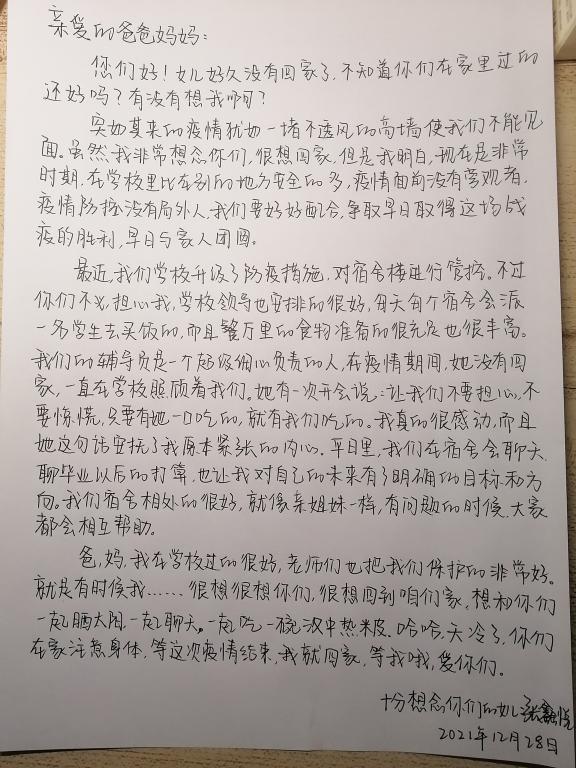 亲爱的爸爸妈妈:
您们好!女儿好久没有回家了,不知道你们在家里过的
还好吗?有没有想我啊?
突如其来的疫情犹如一堵不透风的高墙使我们不能见
面。虽然我非常想念你们,很想回家,但是我明白,现在是非常
时期,在学校里比在别的地方安全的多,疫情面前没有旁观者,
疫情防控没有局外人,我们要好好配合,争取早日取得这场战
疫的胜利,早日与家人团圆。
最近,我们学校升级了防疫措施,对宿舍楼进行管控。不过
你们不必担心我,学校领导也安排的很好,每天每个宿舍会派
一名学生去买饭的,而且餐厅里的食物准备的很充足也很丰富。
我们的辅导员是一个超级细心负责的人,在疫情期间,她没有回
家,一直在学校照顾着我们。她有一次开会说:让我们不要担心,不
要惊慌,只要有她一口吃的,就有我们吃的。我真的很感动,而且
她这句话安抚了我原本紧张的内心。平日里,我们在宿舍会聊天,
聊毕业以后的打算,也让我对自己的未来有了明确的目标和方
向。我们宿舍相处的很好,就像亲姐妹一样,有问题的时候,大家
都会相互帮助。
爸,妈,我在学校过的很好,老师们也把我们保护的非常好。
就是有时候我……很想很想你们,很想回到咱们家,想和你们
一起晒太阳,一起聊天。一起吃一碗汉中热米皮。哈哈,天冷了,你们
在家注意身体,等这次疫情结束,我就回家,等我哦,爱你们。
十分想念你们的女儿:鑫悦
2021年12月28日